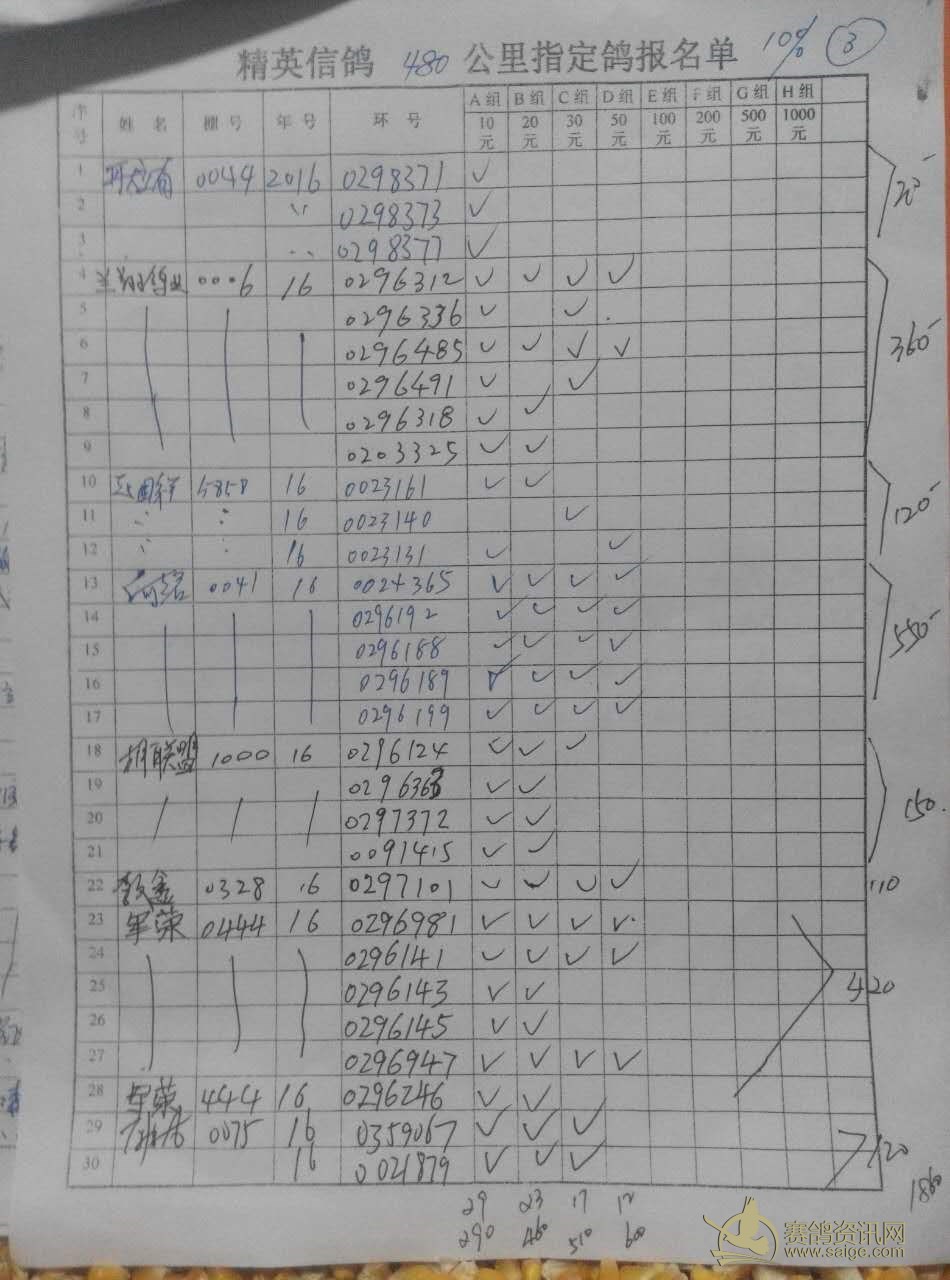 精英信鸽 480 公里指定鸽报名单 10% ③
序号 姓名 棚号 年号 环号 A组10元 B组20元 C组30元 D组50元 E组100元 F组200元 G组500元 H组1000元
1 0044 2016 0298371 ✓
2 〃 0298373 ✓
3 〃 0298377 ✓
30-
4 0006 16 0296312 ✓ ✓ ✓ ✓
5 0296336 ✓ ✓
6 0296485 ✓ ✓ ✓ ✓
7 0296491 ✓ ✓
8 0296318 ✓ ✓
9 0203325 ✓ ✓
360-
10 5858 16 0023161 ✓ ✓
11 〃 〃 16 0023140 ✓
12 〃 〃 16 0023131 ✓ ✓
120-
13 0041 16 0024365 ✓ ✓ ✓ ✓
14 0296192 ✓ ✓ ✓ ✓
15 0296188 ✓ ✓ ✓ ✓
16 0296189 ✓ ✓ ✓ ✓
17 0296199 ✓ ✓ ✓ ✓
550-
18 联盟 1000 16 0296124 ✓ ✓ ✓
19 029636 ✓ ✓
20 0297372 ✓ ✓
21 0091415 ✓ ✓
150.
22 0328 16 0297101 ✓ ✓ ✓ ✓ 110
23 军荣 0444 16 0296981 ✓ ✓ ✓ ✓
24 0296141 ✓ ✓ ✓ ✓
25 0296143 ✓ ✓
26 0296145 ✓ ✓
27 0296947 ✓ ✓ ✓ ✓
28 军荣 444 16 0296246 ✓ ✓
420
29 0075 16 0359067 ✓ ✓ ✓
30 16 0021879 ✓ ✓ ✓
120
29 23 17 12
290 460 510 600
1860
赛鸽资讯网
www.saige.com